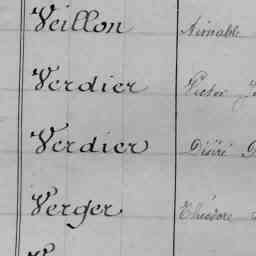 Veillon Aimable
Verdier Victor
Verdier Désiré
Verger Théodore